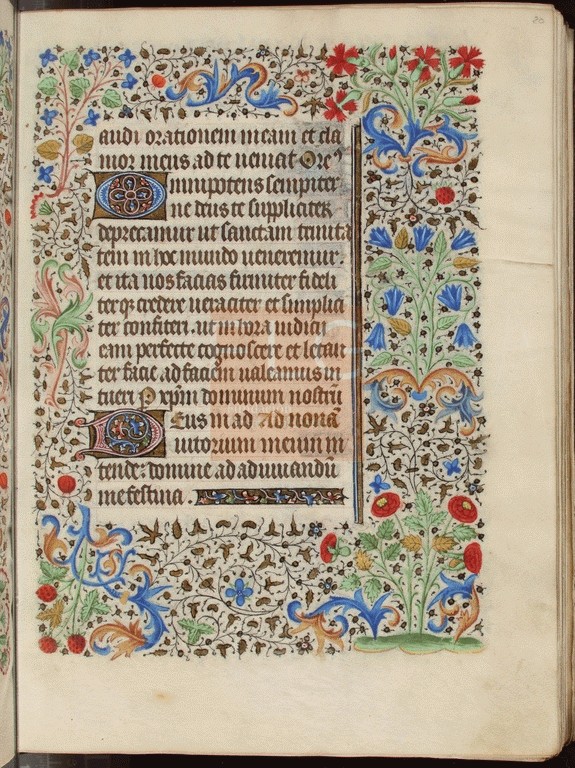 audi orationem meam et cla
mor meus ad te veniat Ore⁹
Omnipotens sempiter
ne deus te suppliciter
deprecamur ut sanctam trinita
tem in hoc mundo veneremur:
et ita nos facias firmiter fideli
terq; credere veraciter et simplici
ter confiteri. ut in hora iudicii
eam perfecte cognoscere et letan
ter facie ad faciem valeamus in
tueri P xpm dominum nostrũ
Deus in ad Ad nonã
iutorium meum in
tende: domine ad adiuuandũ
me festina.